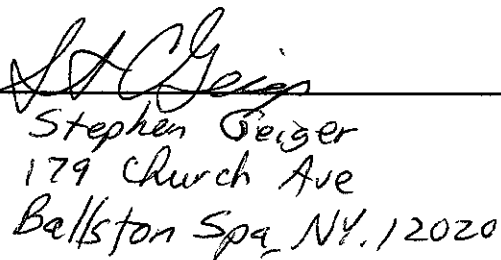 St C Geiger
Stephen Geiger
179 Church Ave
Ballston Spa, NY. 12020